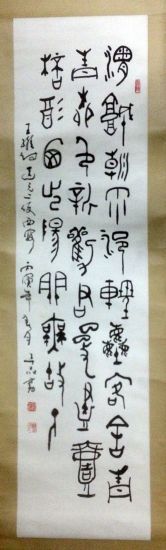 渭城朝雨浥輕塵客舍青
青柳色新勸君更盡一
桮酒西出陽關無故人
王維詩送元二使 丙寅年 月 書